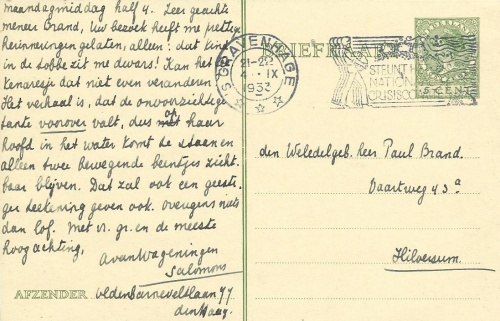 maandagmiddag half 4. Zeer geachte
meneer Brand, Uw bezoek heeft me prettige
herinneringen gelaten, alleen: dat kind
in de tobbe zit me dwars! Kan het
kenaresje dat niet even veranderen
Het verhaal is, dat de onvoorzichtige
tante voorover valt, dus met haar
hoofd in het water komt te staan en
alleen twee bewegende beentjes zicht-
baar blijven. Dat zal ook een geesti-
ger teekening geven ook. overigens niets
dan lof. Met vr. gr. en de meeste
hoogachting,
A van Wageningen
Salomons
AFZENDER v Oldenbarneveltlaan 77
den Haag.
BRIEFKAART
'S-GRAVENHAGE
21-22
4 IX
1933
STEUNT H
NATI
CRISISCO
5 CENT
den Weledelgeb. heer Paul Brand.
Vaartweg 43a
Hilversum.